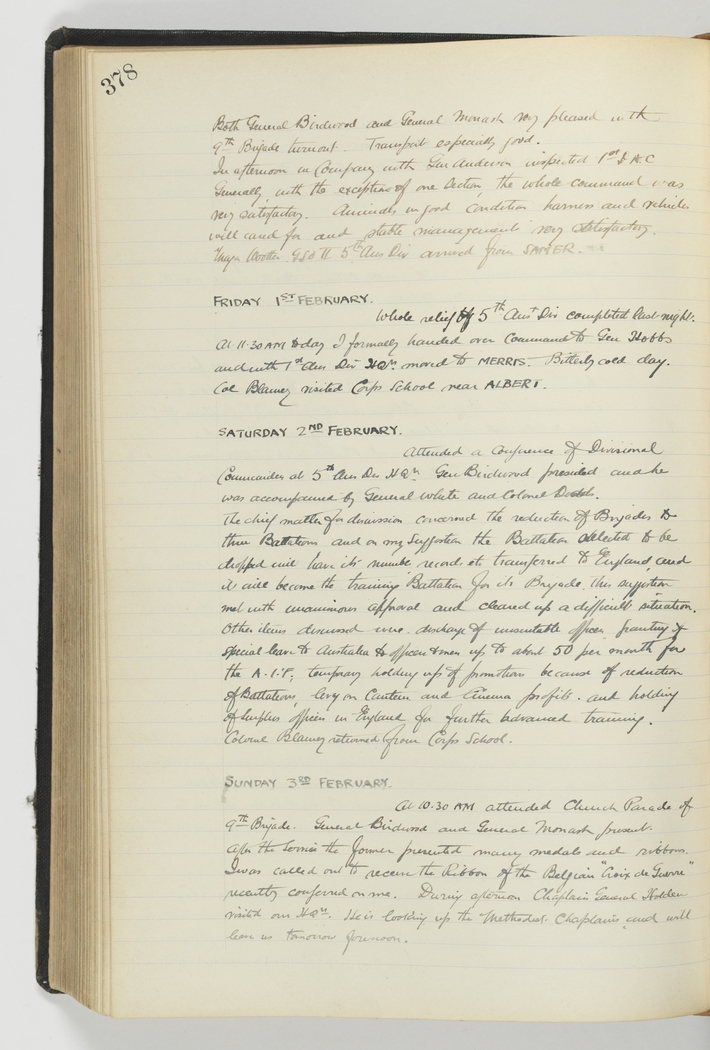 378
Both General Birdwood and General Monash very pleased with
9th Brigade turnout. Transport especially good.
In afternoon in Company with Gen Anderson inspected 1st D A C
Generally, with the exception of one Section, the whole command was
very satisfactory. Animals in good condition, harness and vehicles
well cared for and stable management very satisfactory.
Major Wootten GSO II 5th Aus Div arrived from SAMER.
FRIDAY 1ST FEBRUARY.
Whole relief of 5th Aust Div completed last night.
At 11.30 AM to-day I formally handed over Command to Gen Hobbs
and with 1st Aus Div HQrs. moved to MERRIS. Bitterly cold day.
Col Blamey visited Corps School near ALBERT.
SATURDAY 2ND FEBRUARY.
Attended a Conference of Divisional
Commanders at 5th Aus Div HQrs. Gen Birdwood presided and he
was accompanied by General White and Colonel Dodds.
The chief matter for discussion concerned the reduction of Brigades to
three Battalions and on my suggestion the Battalion selected to be
dropped will have its number, records etc transferred to England, and
it will become the training Battalion for its Brigade. This suggestion
met with unanimous approval and cleared up a difficult situation.
Other items discussed were. discharge of unsuitable officers, granting of
special leave to Australia to officers & men up to about 50 per month for
the A.I.F; temporary holding up of promotions because of reduction
of Battalions, levy on Canteen and Cinema profits. and holding
of Surplus officers in England for further advanced training.
Colonel Blamey returned from Corps School.
SUNDAY 3RD FEBRUARY.
At 10.30 AM attended Church Parade of
9th Brigade. General Birdwood and General Monash present.
After the Service the former presented many medals and ribbons.
I was called out to receive the Ribbon of the Belgian "Croix de Guerre"
recently conferred on me. During afternoon Chaplain General Holden
visited our HQrs. He is looking up the Methodist Chaplains, and will
leave us tomorrow forenoon.